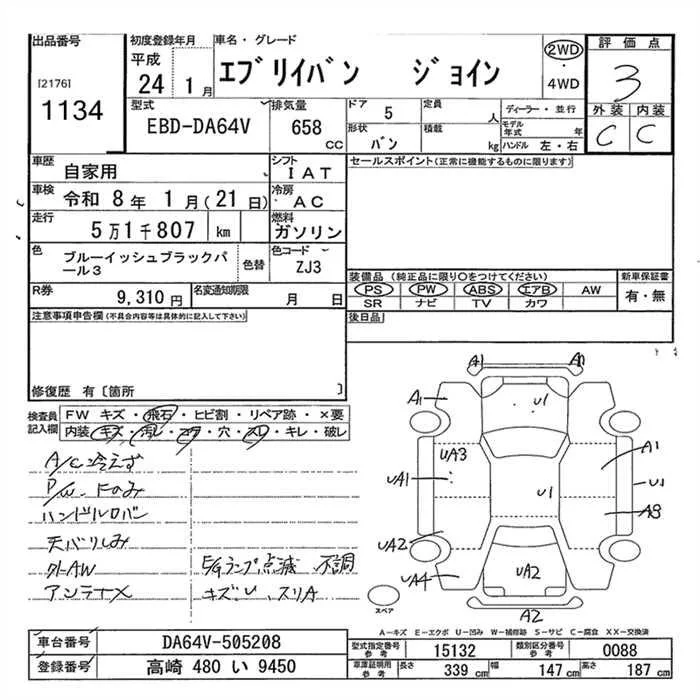 出品番号
[2176]
1134
初度登録年月
平成
24 1月
車名・グレード
エブリイバン ジョイン
2WD
・
4WD
評価点
3
外装 内装
C C
型式
EBD-DA64V
排気量
658
CC
ドア 5
形状 バン
定員 人
積載 kg
ディーラー・並行
モデル年式 年
ハンドル 左・右
車歴 自家用
シフト IAT
セールスポイント(正常に機能するものに限ります)
車検 令和 8年 1月(21日)
冷房 AC
走行 5万1千807 km
燃料 ガソリン
色 ブルーイッシュブラックパール3
色替
色コード ZJ3
装備品(純正品に限り○をつけてください)
新車保証書
PS PW ABS エアB AW
SR ナビ TV カワ
有・無
R券 9,310円
名変通知期限 月 日
後日品
注意事項申告欄(不具合内容等は具体的に記入して下さい)
修復歴 有〔箇所 〕
検査員記入欄
FW キズ・飛石・ヒビ割・リペア跡・×要
内装・キズ・汚レ・コゲ・穴・スレ・キレ・破レ
A/C冷えず
P/W、Fのみ
ハンドルロバン
天バリしみ
外AW
アンテナ×
E/Gランプ点滅 不調
キズU、スリA
A1 A1
A1 U1
UA3 A1
UA1 U1 U1
A3
UA2
UA4 UA2
A2
スペア
A－キズ E－エクボ U－凹み W－補修跡 S－サビ C－腐食 XX－交換済
車台番号 DA64V-505208
登録番号 高崎 480 い 9450
型式指定番号 参考 15132
類別区分番号 参考 0088
車庫証明用 参考 長さ 339 cm 幅 147 cm 高さ 187 cm